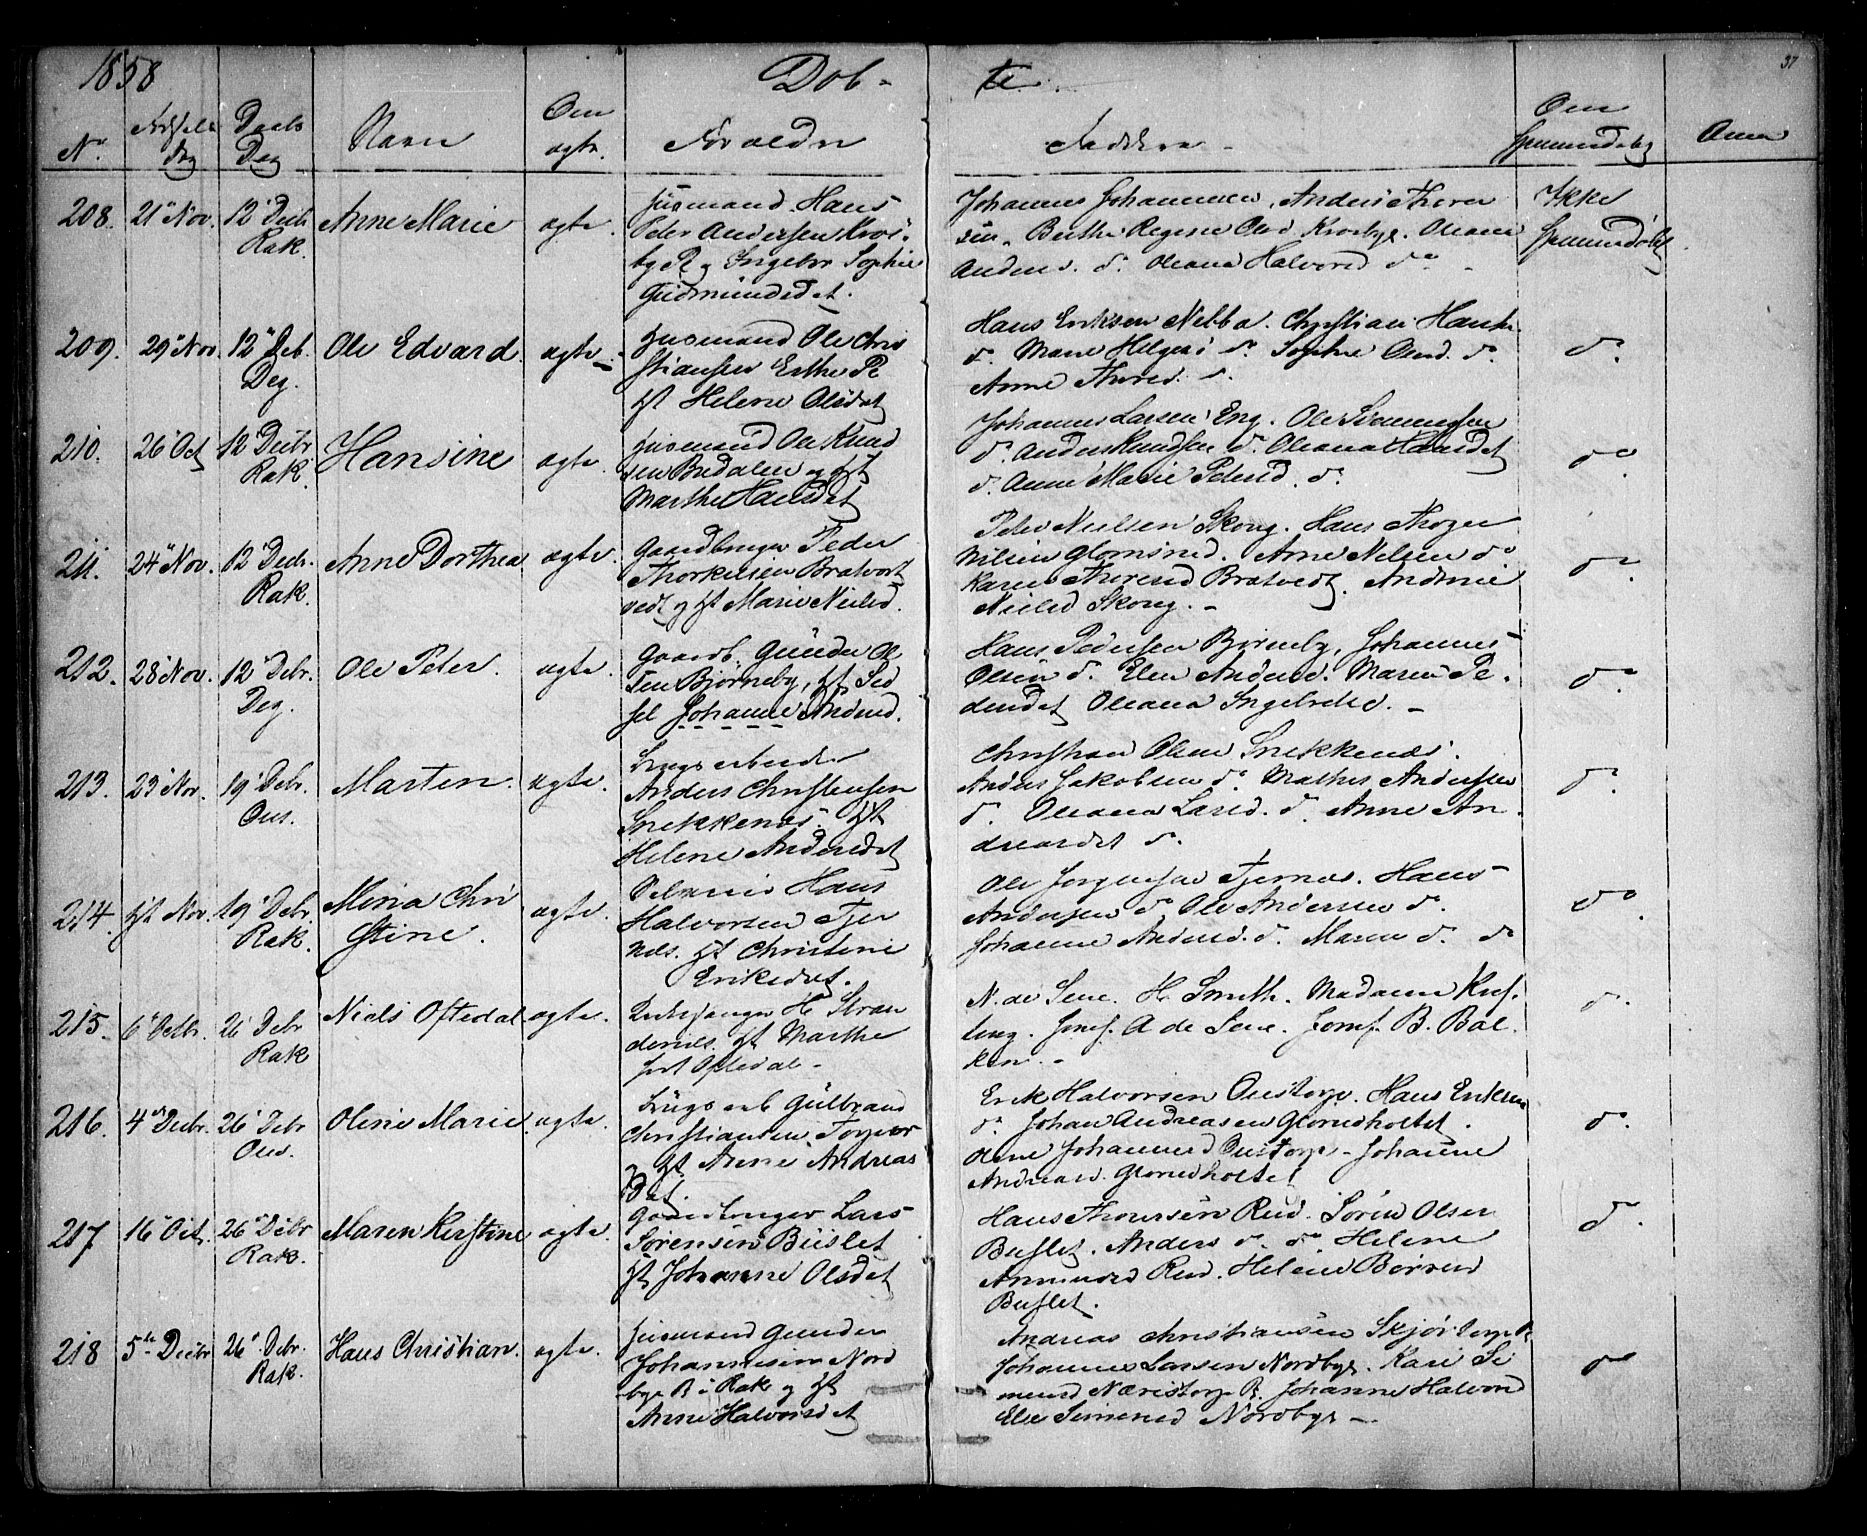 1858 Dob- te. 37
No Fødsels dag Daabs Dag Navn Om ægte. Forældre Faddere Om Anm
208. 21 Nov. 12 Decbr Rak. Anne Marie ægte.
Huusmand Hans
Peter Andersen Kros-
by Pl og Ingebor Sophie
Gudmundsdat.
Johannes Johannesen, Anders Thorer
sen. Berthe Regine Olsd Krosbye. Oleane
Anders. do. Oleana Halvorsd do
Ikke
209. 29 Nov. 12 Deb. Deg. Ole Edvard. ægte
Huusmand Ole Chris
stiansen Pl
gt Helene Olsdat
Hans Eriksen Nebba. Christian Hans.
do. Marie Helgers do. Sophie Olsd. do.
Anne Thored. do.
do.
210. 26 Oct 12 Decbr Rak. Hansine ægte.
Huusmand Ole Knud
sen Bredalen og gt
Marthe Hansdat
Johannes Larsen Eng. Ole Simensen
do. Anders Knudsen do. Oleana Hansdat
do. Anne Marie Petersd. do.
do
211. 24 Nov. 12 Decbr. Rak. Anne Dorthea ægte.
Gaardbruger Peder
Thorkelsen Bratvort
vedt og gt Marie Nielsd.
Peter Nielsen Skoug. Hans Thoger
Nilsen Glomsrud. Arne Nelsen do
Karen Thoresd Bratvedt. Andrine
Nielsd Skoug. -
do.
212. 28 Nov. 12 Debr. Deg. Ole Peter. ægte.
Gaardb. Gunder Ol
sen Bjørneby, gt Sid
sel Johanne Andersd.
Hans Pedersen Bjørneby, Johannes
Olsen do. Elen Andersd. Maren Pe-
dersdat Oleana Ingebretsd. -
do.
213. 23 Nov. 19 Debr. Ous. Marten. ægte.
Brugs arbeider
Anders Christensen
Snekkenæs. gt
Helene Andersdat
Christian Olsen Snekkenæs.
Anders Jakobsen do Mathis Anderssen
do. Oleana Larsd. do. Anne An-
dreasdat do.
do.
214. Nov. 19 Debr. Rak. Mina Chri
stine. ægte.
Hans
Halvorsen Tjer
næs. gt Christine
Eriksdat.
Ole Jørgensen Tjernæs. Hans
Andersen do Ole Andersen do.
Johanne Andersd. do. Maren do. do
do.
215. 6 Octbr. 26 Debr Rak Niels Oftedal ægte.
Kirkesanger H Stran
denæs. gt Marthe
født Oftedal -
N. de Seue. H. Smith. Madame
Jomf. A de Seue. Jomf. B. Bal-
ken. -
do.
216. 4 Decbr. 26 Debr Ous. Oline Marie ægte.
Brugs arb Gulbrand
Christiansen Torper
og gt Anne Andreas
Dat.
Erik Halvorsen Oustorp. Hans Eriksen
do. Johan Andreasen Glomsholtet.
Olene Johannesd Oustorp - Johanne
Andreasd. Glomsholtet
do.
217 16 Oct. 26 Debr Rak. Maren Kerstine ægte.
Gaardbruger Lars
Sørensen Buslet
gt Johanne Olsdat
Hans Thoresen Rud. Sören Olsen
Buslet. Anders do. do. Helene
Ammundsd Rud. Helene Børresd
Buslet.
do.
218 5te Decbr 26 Debr. Rak. Hans Christian. ægte.
Huusmand Gunder
Johannesen Nord
bye P i Rak og gt
Anne Halvorsdat
Andreas Christiansen Skjørtorp
Johannes Larsen Nordbye. Kari Si
mensd Næristorp P. Johanne Halvorsd
Else Simensd Nordbye -
do